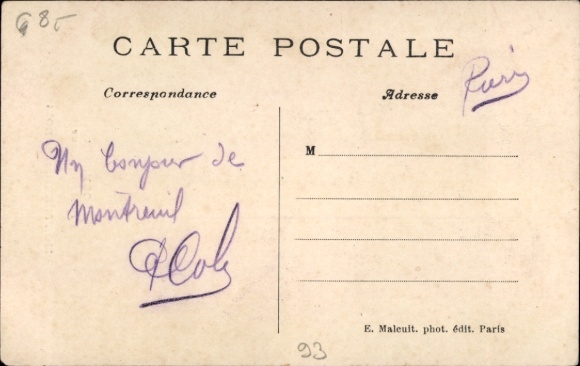 G 85
CARTE POSTALE
Correspondance
Adresse
Paris
Un bonjour de
Montreuil
M
E. Malcuit. phot. édit. Paris
93